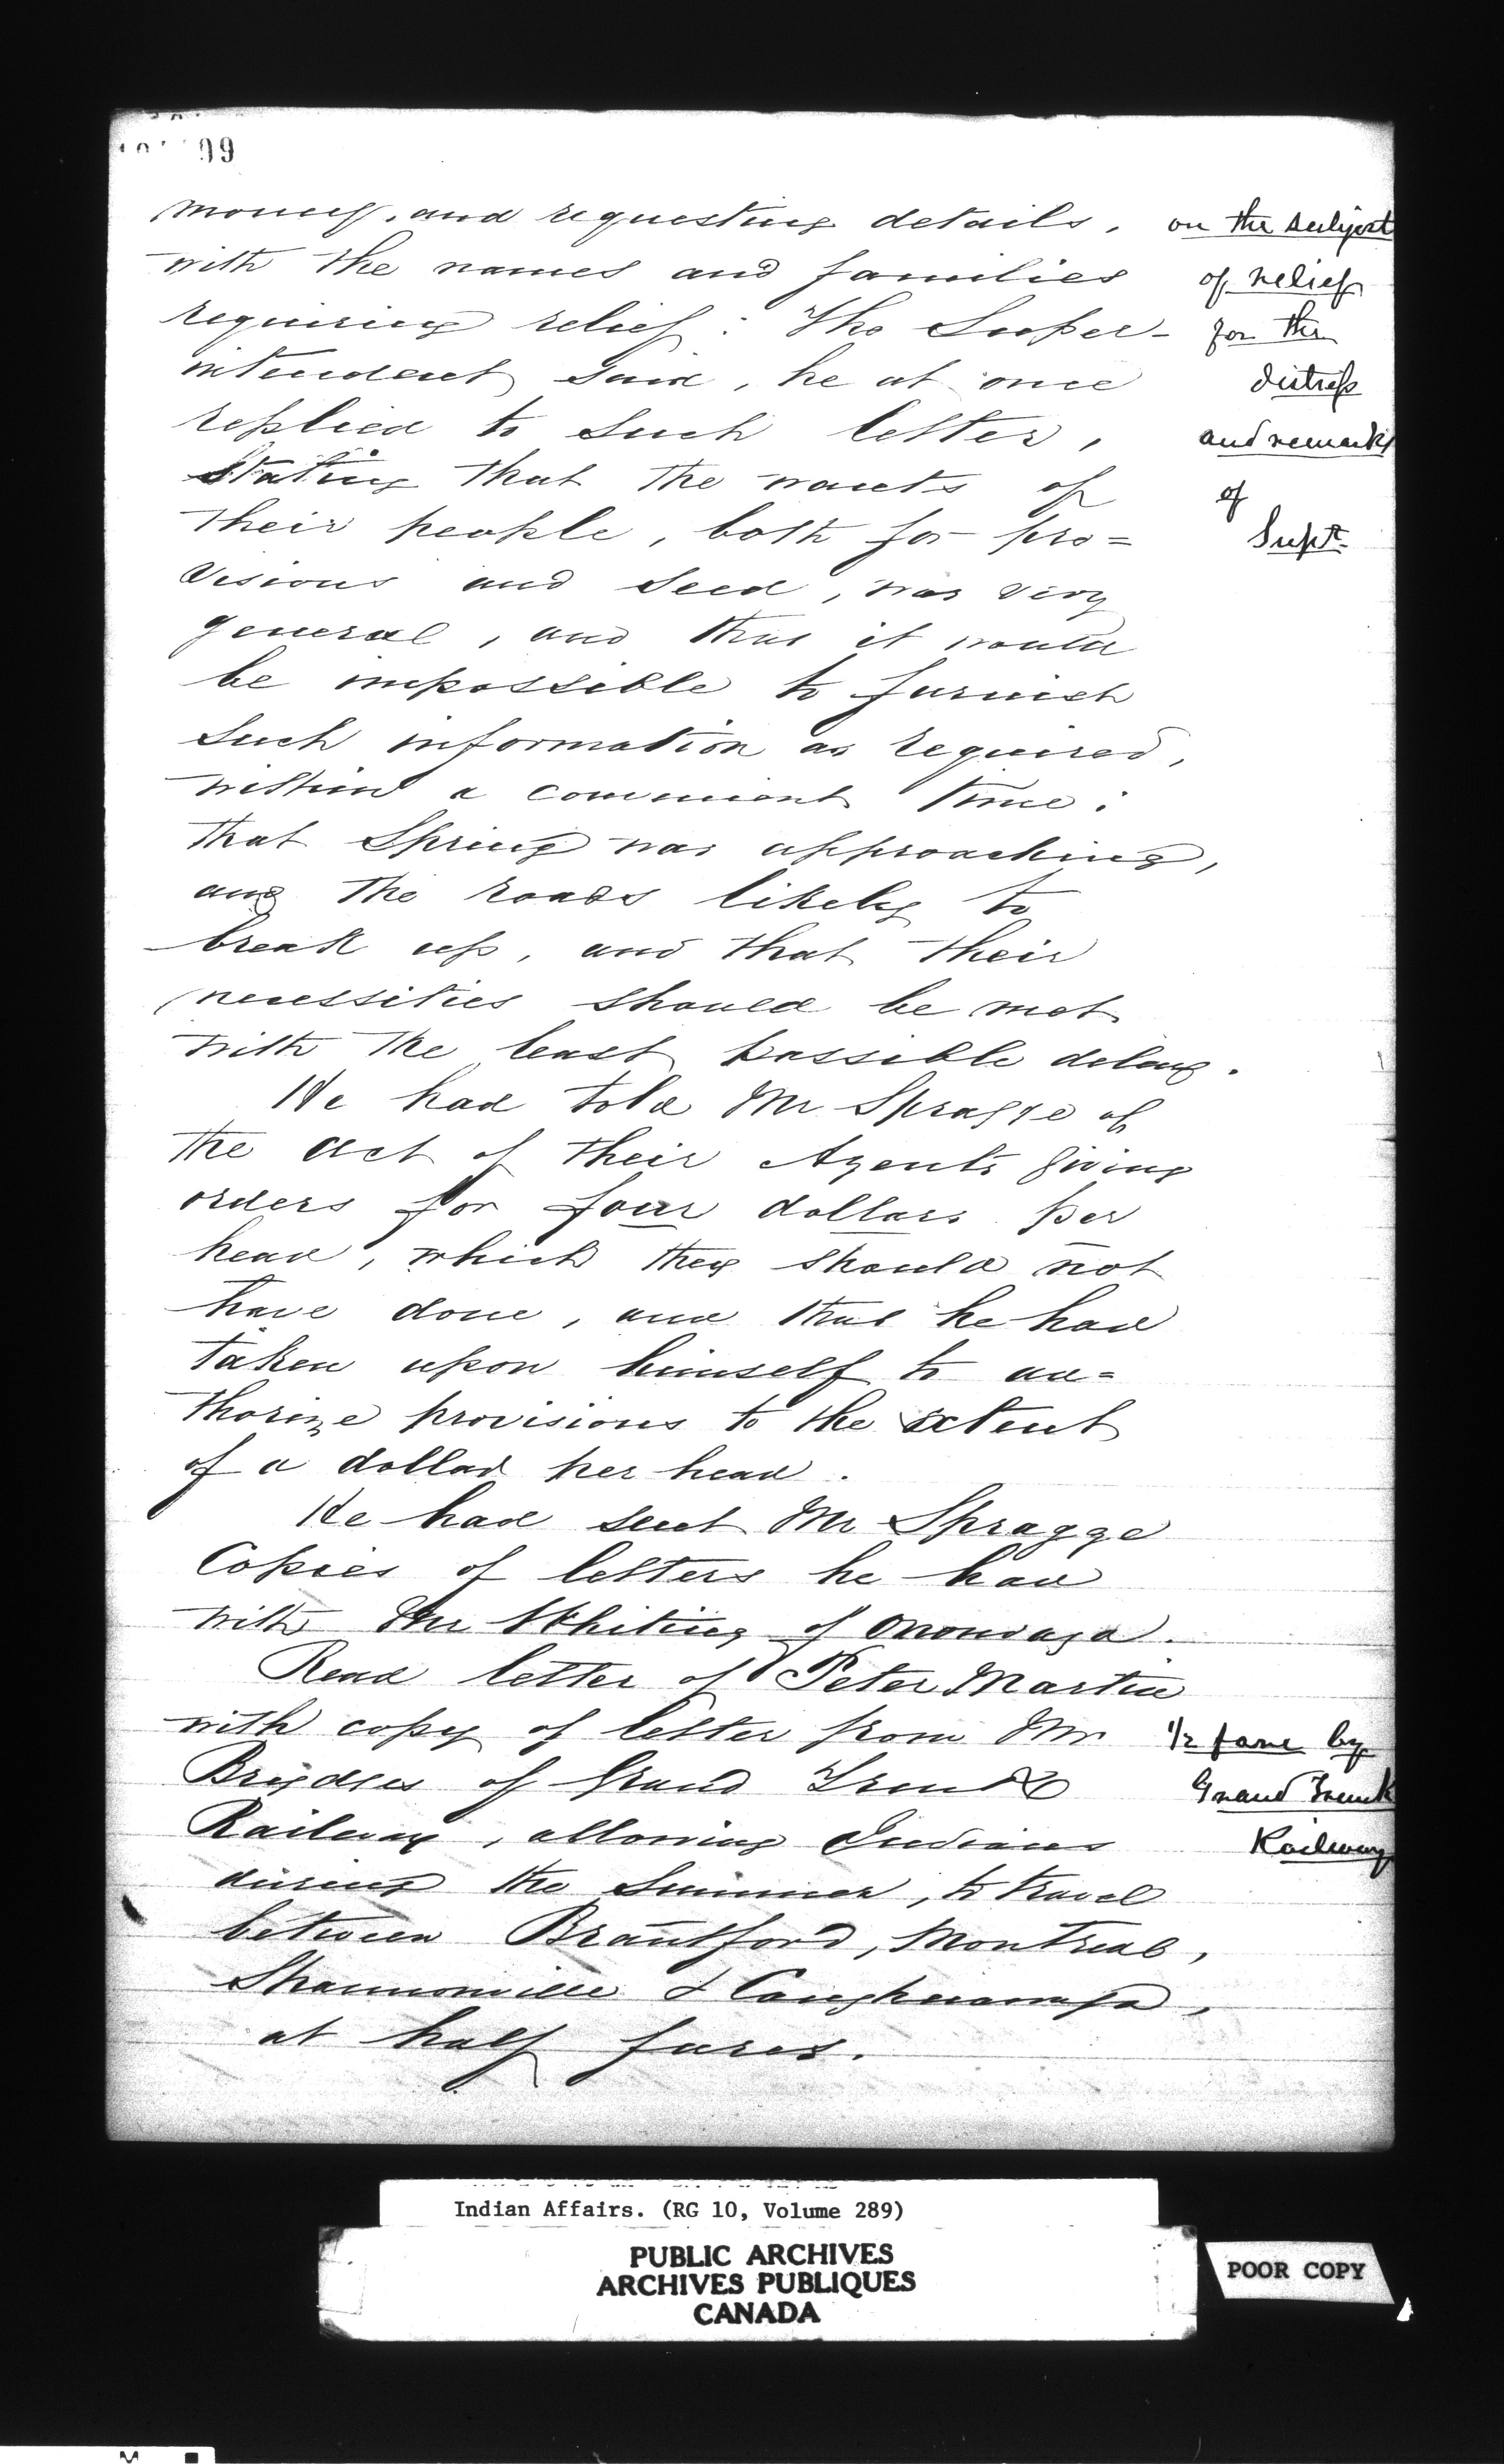 99
moneys, and requesting details,
with the names and families
requiring relief: The Super-
intendent said, he at once
replied to such letter,
stating that the wants of
their people, both for pro=
visions and seed, was very
general, and that it would
be impossible to furnish
such information as required,
within a convenient time:
that Spring was approaching,
and the roads likely to
break up, and that their
necessities should be met
with the least possible delay.
He had told Mr Spragge of
the act of their Agents giving
orders for four dollars per
head, which they should not
have done, and that he had
taken upon himself to au=
thorize provisions to the extent
of a dollar per head.
He had sent Mr Spragge
Copies of letters he had
with Mr Whiting of Onondaga.
Read letter of Peter Martin
with copy of letter from Mr
Brydges of Grand Trunk
Railway, allowing Indians
during the Summer, to travel
between Brantford, Montreal,
Shannonville & Caughnawaga,
at half fares.
on the subject
of relief
for the
distress
and remarks
of
Supt.
1/2 fare by
Grand Trunk
Railway
Indian Affairs. (RG 10, Volume 289)
PUBLIC ARCHIVES
ARCHIVES PUBLIQUES
CANADA
POOR COPY